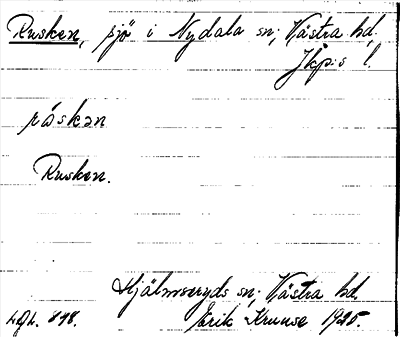 Rusken, sjö i Nydala sn; Västra hd,
Jkp:s l.
råskən
Rusken.
Hjälmseryds sn; Västra hd.
Erik Kruuse 1925.